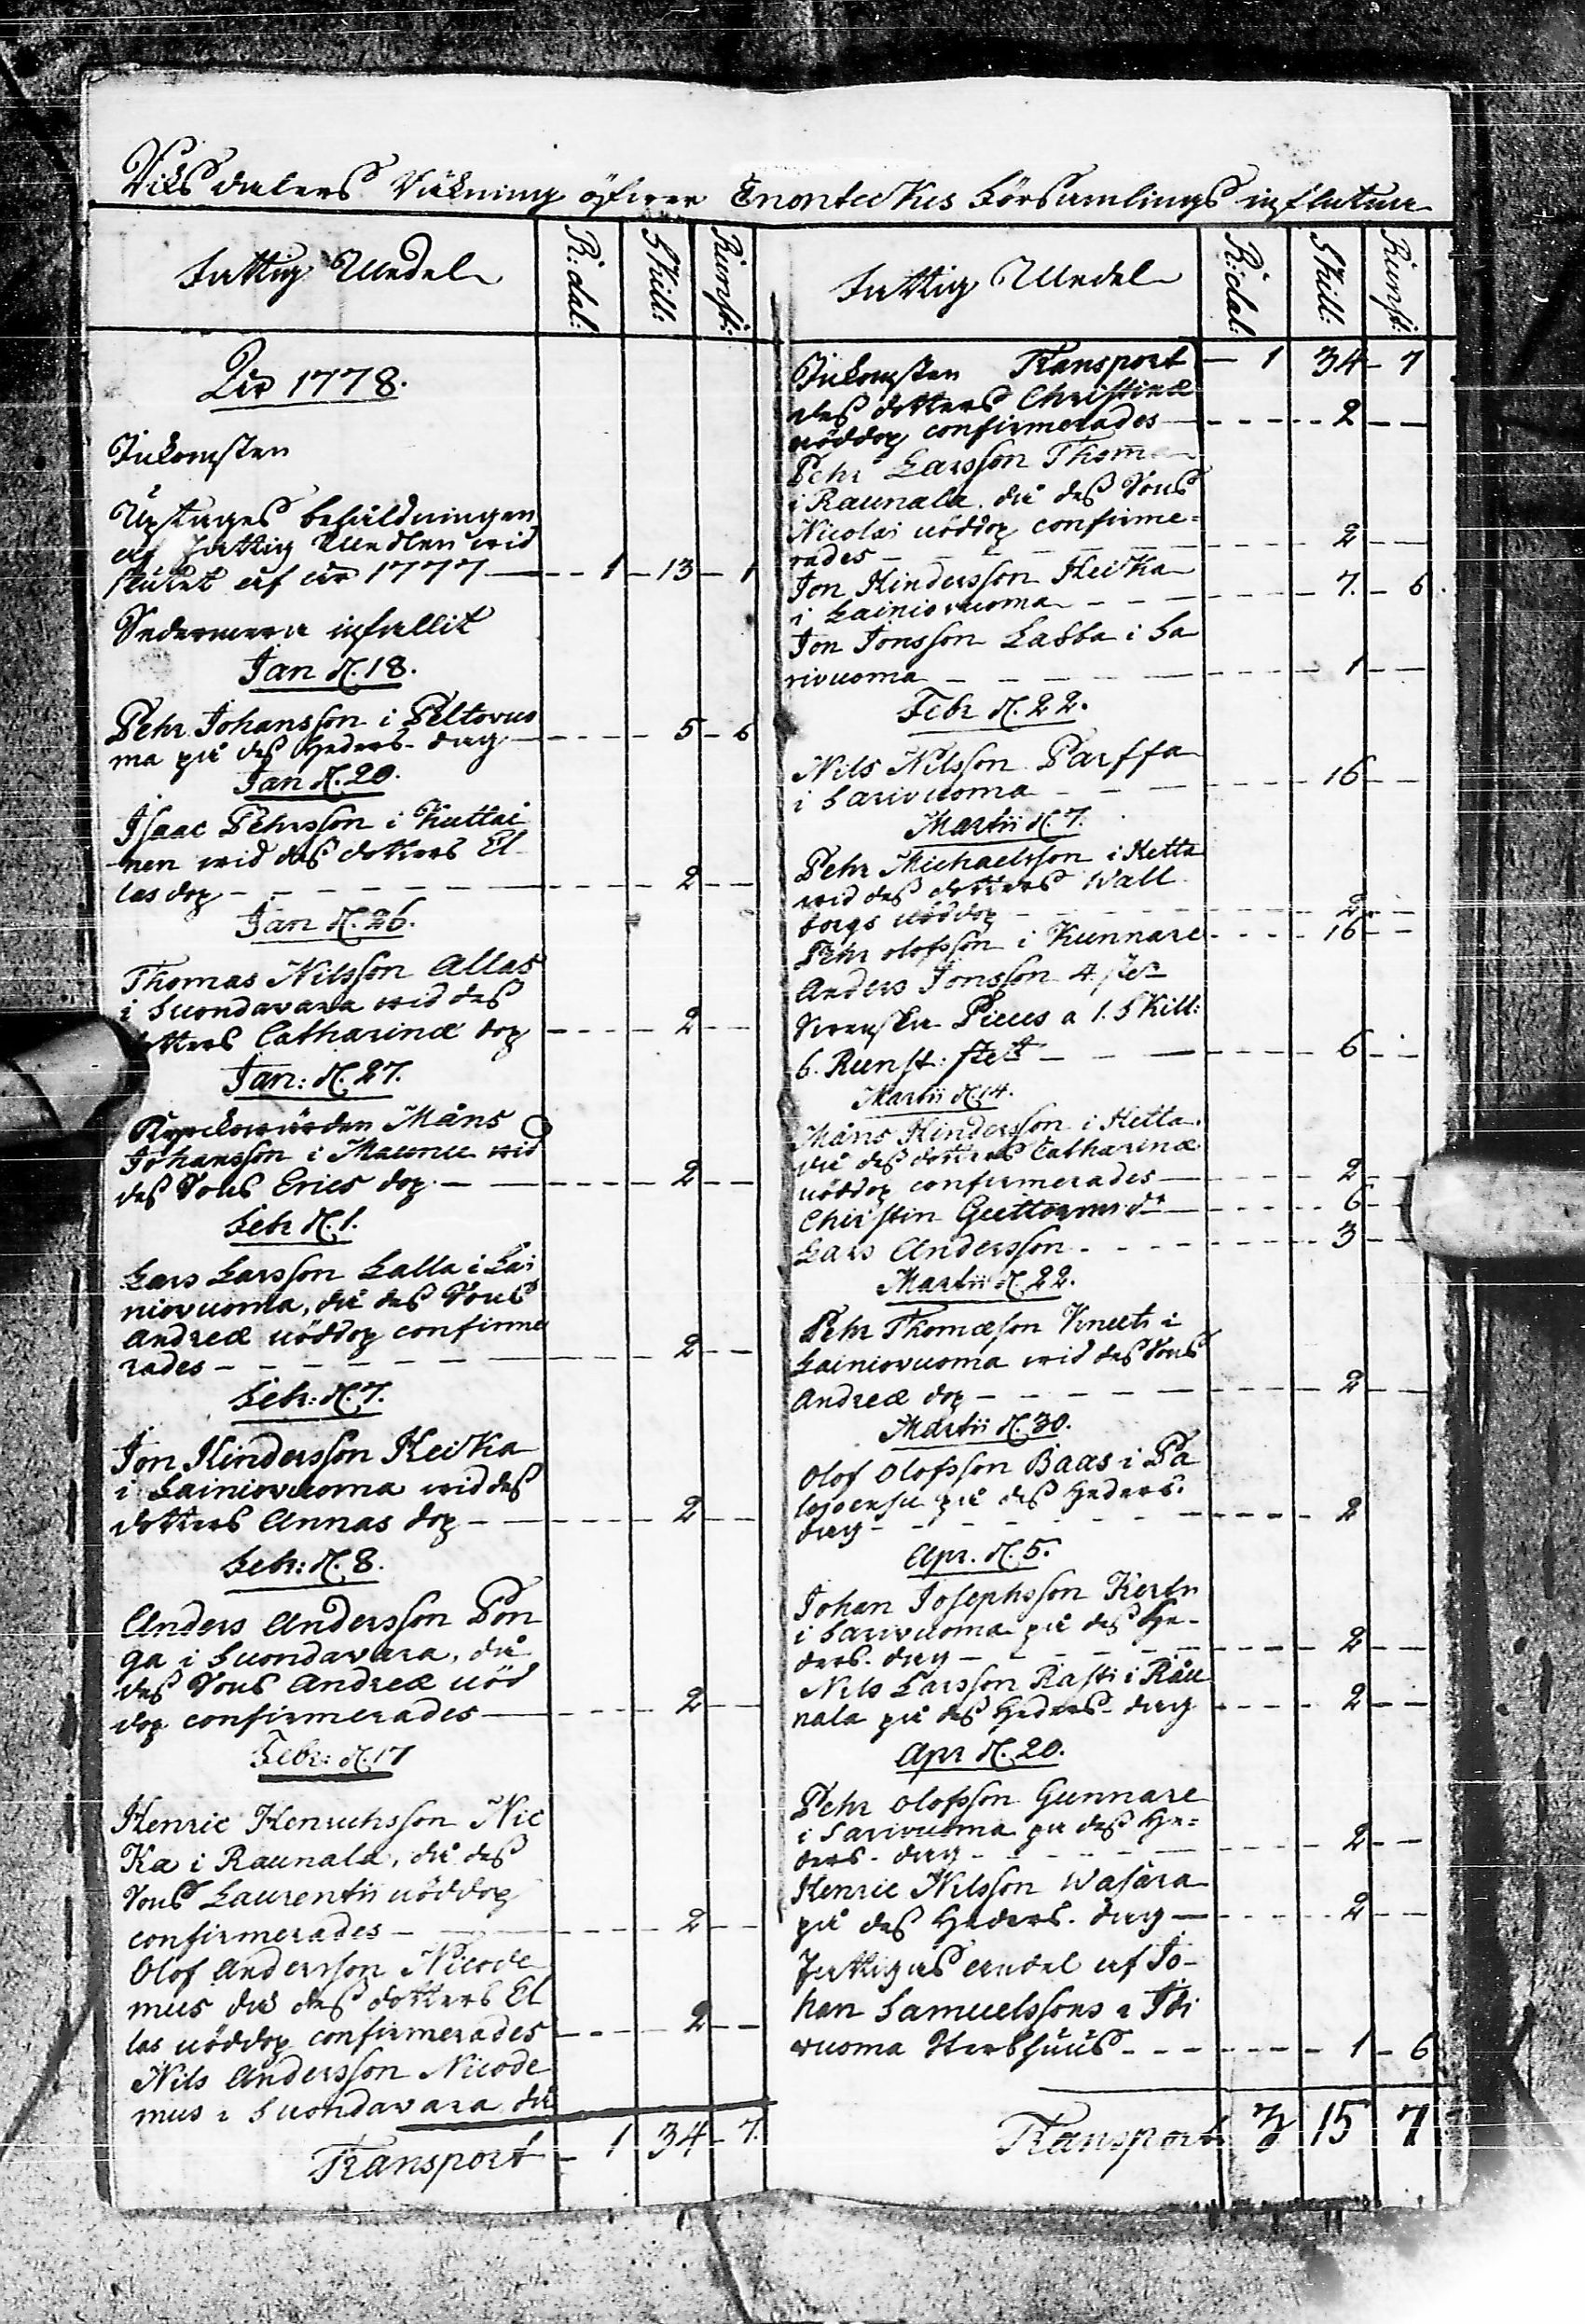 Riksdalers Räkning öfwer Enontekis Församlings influtna
Fattig Medel R:dal: Skill: Runst:
Åir 1778.
Inkomsten
Uptages behåldningen
af Fattig Medlen wid
slutet af år 1777 1 13 1
Sedermera infallit
Jan d. 18.
Pehr Johansson i Peltovuo
ma på des Heders-dag 5 6
Jan d. 20.
Isaac Pehrsson i Kuttai
nen wid des dotters El
las dop 2
Jan d. 26.
Thomas Nilsson Allas
i Suondavara wid des
dotters Catharinæ dop 2
Jan: d. 27.
Kyrckowärden Måns
Johansson i Maunu wid
des Sons Erics dop 2
Febr d. 1.
Lars Larsson Lalla i Lai
niovuoma, då des Sons
Andreæ nöddop confirme
rades 2
Febr: d. 7.
Jon Hindersson Heikka
i Lainiovuoma wid des
dotters Annas dop 2
Febr: d. 8.
Anders Andersson Pon
ga i Suondavara, då
des Sons Andreæ nöd
dop confirmerades 2
Febr: d. 17
Henric Henrichsson Nic
ka i Raunala, då des
Sons Laurentii nöddop
confirmerades 2
Olof Andersson Nicode
mus då des dotters El
las nöddop confirmerades 2
Nils Andersson Nicode
mus i Suondavara då
Transport 1 34 7.
Fattig Medel R:dal: Skill: Runst:
Inkomsten Transport 1 34 7
des dotters Christinæ
nöddop confirmerades 2
Pehr Larsson Thomma
i Raunala då des Sons
Nicolai nöddop confirme=
rades 2
Jon Hindersson Heikka
i Lainiovuoma 7. 6.
Jon Jonsson Labba i Sa
rivuoma 1
Febr d. 22.
Nils Nilsson Parffa
i Sarivuoma 16
Martii d. 7.
Pehr Michaelsson i Hetta
wid des dotters Wall
borgs nöddop 2
Pehr Olofsson i Kunnare 16
Anders Jonsson 4 st
Swenska Pieces a 1. Skill:
6. Runst: st 6
Martii d. 14.
Måns Hindersson i Hetta
då des dotters Catharinæ
nöddop confirmerades 2
Christin Guttormsdr 6
Lars Andersson 3
Martii d. 22.
Pehr Thomæson Kneuti i
Lainiovuoma wid des Sons
Andreæ dop 2
Martii d. 30.
Olof Olofsson Baas i Pa
lojoensu på des Heders-
dag 2
Apr. d. 5.
Johan Josephsson Kertu
i Sarivuoma på des He-
ders-dag 2
Nils Larsson Rasti i Rau
nala på des Heders-dag 2
Apr d. 20.
Pehr Olofsson Gunnare
i Sarivuoma på des He=
ders-dag 2
Henric Nilsson Wasara
på des Heders-dag 2
Fattigas andel af Jo-
han Samuelssons i Idi
vuoma Sterbhuus 1 6
Transport 3 15 7